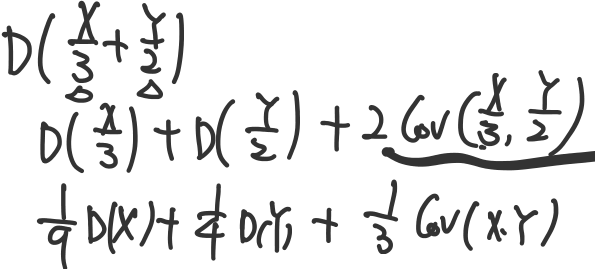 D(X/3 + Y/2)
D(X/3) + D(Y/2) + 2 Cov(X/3, Y/2)
1/9 D(X) + 1/4 D(Y) + 1/3 Cov(X.Y)